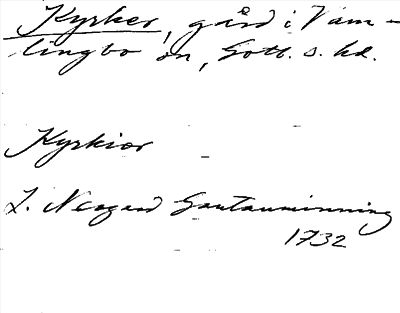 Kyrker, gård i Vam-
lingbo sn, Gotl. s. hd.
Kyrkior
L. Neogard Gautauminning
1732